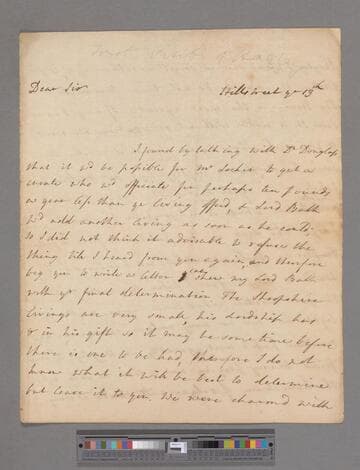 Dear Sir
Hill Street ye 13th
I found by talking with Dr Douglass
that it wd be possible for Mr Locher to get a
curate who wd officiate for perhaps ten pounds
a year less than ye living offerd, & Lord Bath
wd add another living as soon as he could
so I did not think it adviseable to refuse the
thing till I heard from you again, and therefore
beg you to write a letter I can shew my Lord Bath
with yr final determination The Shropshire
livings are very small, his Lordship has
8 in his gift so it may be some time before
there is one to be had, therefore I do not
know what it will be best to determine
but leave it to you. We were charmd with